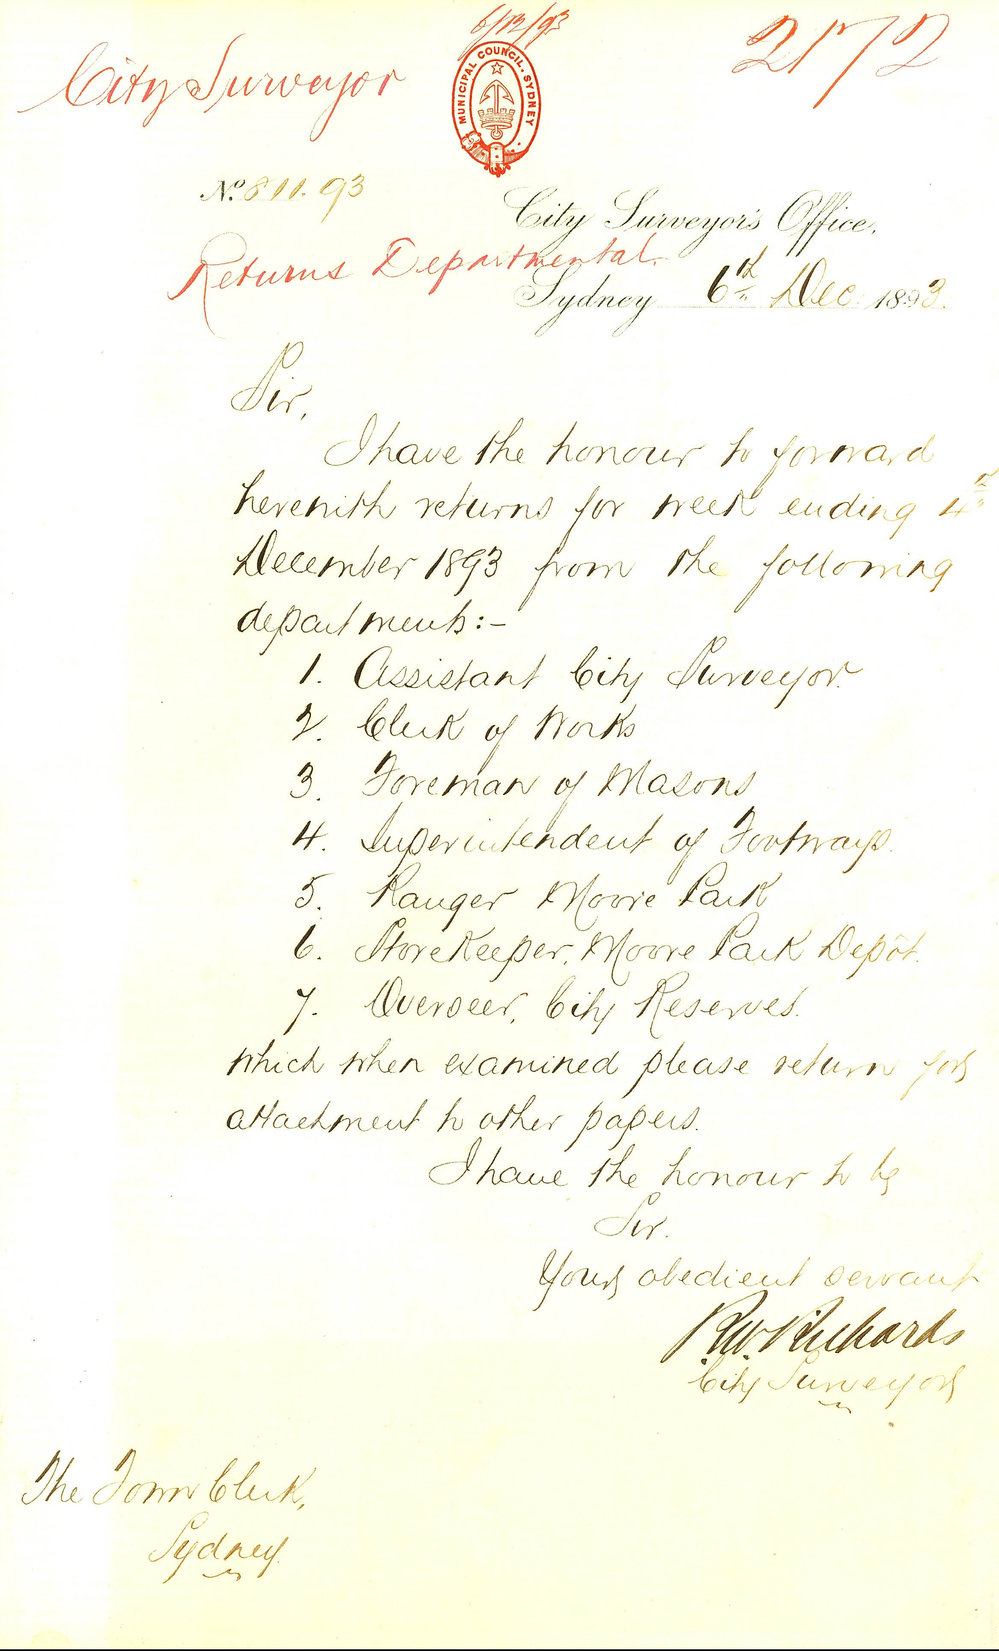 6/12/93
City Surveyor
2172
MUNICIPAL COUNCIL. SYDNEY
No. 811. 93
City Surveyor's Office.
Returns Departmental.
Sydney 6th Dec. 1893.
Sir,
I have the honour to forward
herewith returns for week ending 4th
December 1893 from the following
departments:-
1. Assistant City Surveyor.
2. Clerk of Works
3. Foreman of Masons
4. Superintendent of Footways.
5. Ranger Moore Park
6. Storekeeper, Moore Park Depôt.
7. Overseer, City Reserves.
which when examined please return for
attachment to other papers.
I have the honour to be
Sir.
Your obedient servant
R.W. Richards
City Surveyor
The Town Clerk,
Sydney.